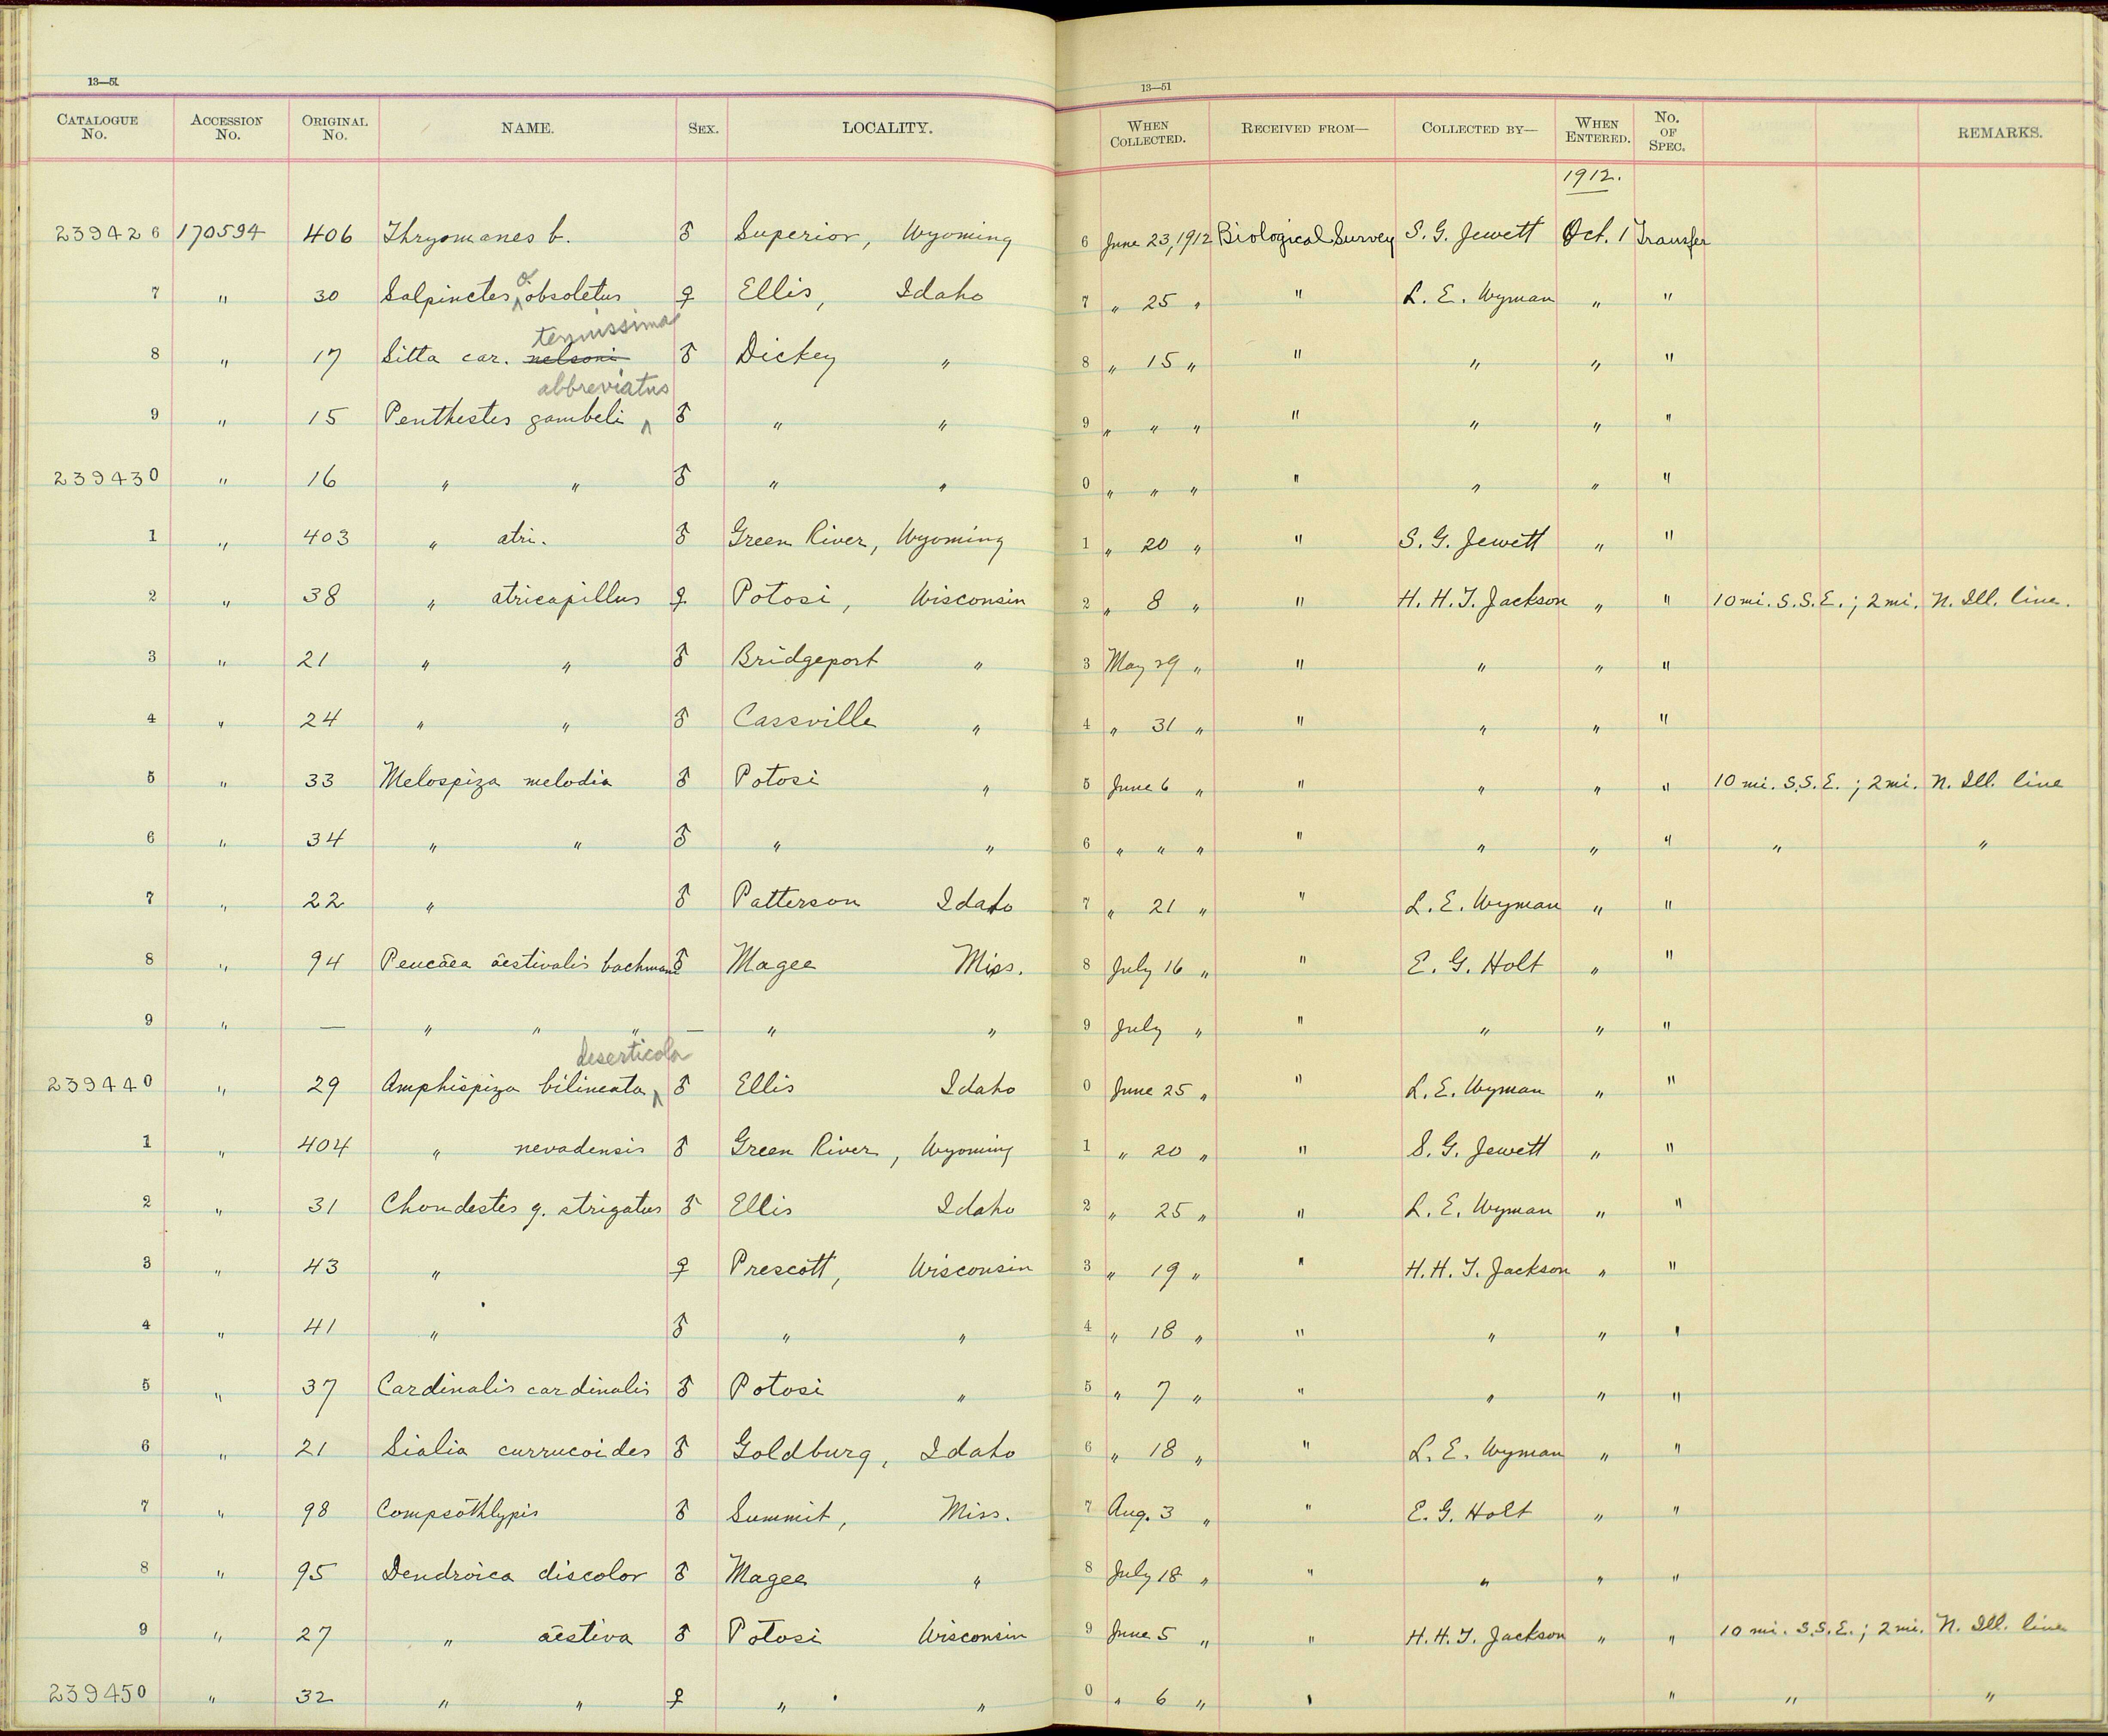 13—51
13—51
CATALOGUE No. ACCESSION No. ORIGINAL No. NAME. SEX. LOCALITY. WHEN COLLECTED. RECEIVED FROM— COLLECTED BY— WHEN ENTERED. No. OF SPEC. REMARKS.
1912.
239426 170594 406 Thryomanes b. ♂ Superior, Wyoming 6 June 23, 1912 Biological Survey S. G. Jewett Oct. 1 Transfer
o
7 " 30 Salpinctes ^ obsoletus ♀ Ellis, Idaho 7 " 25 " " L. E. Wyman " "
tenuissima
8 " 17 Sitta car. nelsoni ♂ Dickey " 8 " 15 " " " " "
abbreviatus
9 " 15 Penthestes gambeli ^ ♂ " " 9 " " " " " " "
239430 " 16 " " ♂ " " 0 " " " " " " "
1 " 403 " atri. ♂ Green River, Wyoming 1 " 20 " " S. G. Jewett " "
2 " 38 " atricapillus ♀ Potosi, Wisconsin 2 " 8 " " H. H. T. Jackson " " 10 mi. S.S.E.; 2 mi. N. Ill. line.
3 " 21 " " ♂ Bridgeport " 3 May 29 " " " " "
4 " 24 " " ♂ Cassville " 4 " 31 " " " " "
5 " 33 Melospiza melodia ♂ Potosi " 5 June 6 " " " " " 10 mi. S.S.E.; 2 mi. N. Ill. line
6 " 34 " " ♂ " " 6 " " " " " " " " "
7 " 22 " ♂ Patterson Idaho 7 " 21 " " L. E. Wyman " "
8 " 94 Peucaea aestivalis bachmani ♂ Magee Miss. 8 July 16 " " E. G. Holt " "
9 " — " " " — " " 9 July " " " " "
deserticola
239440 " 29 Amphispiza bilineata ^ ♂ Ellis Idaho 0 June 25 " " L. E. Wyman " "
1 " 404 " nevadensis ♂ Green River, Wyoming 1 " 20 " " S. G. Jewett " "
2 " 31 Chondestes g. strigatus ♂ Ellis Idaho 2 " 25 " " L. E. Wyman " "
3 " 43 " ♀ Prescott, Wisconsin 3 " 19 " " H. H. T. Jackson " "
4 " 41 " ♂ " " 4 " 18 " " " " "
5 " 37 Cardinalis cardinalis ♂ Potosi " 5 " 7 " " " " "
6 " 21 Sialia currucoides ♂ Goldburg, Idaho 6 " 18 " " L. E. Wyman " "
7 " 98 Compsothlypis ♂ Summit, Miss. 7 Aug. 3 " " E. G. Holt " "
8 " 95 Dendroica discolor ♂ Magee " 8 July 18 " " " " "
9 " 27 " aestiva ♂ Potosi Wisconsin 9 June 5 " " H. H. T. Jackson " " 10 mi. S.S.E.; 2 mi. N. Ill. line
239450 " 32 " " ♀ " " 0 " 6 " " " " "